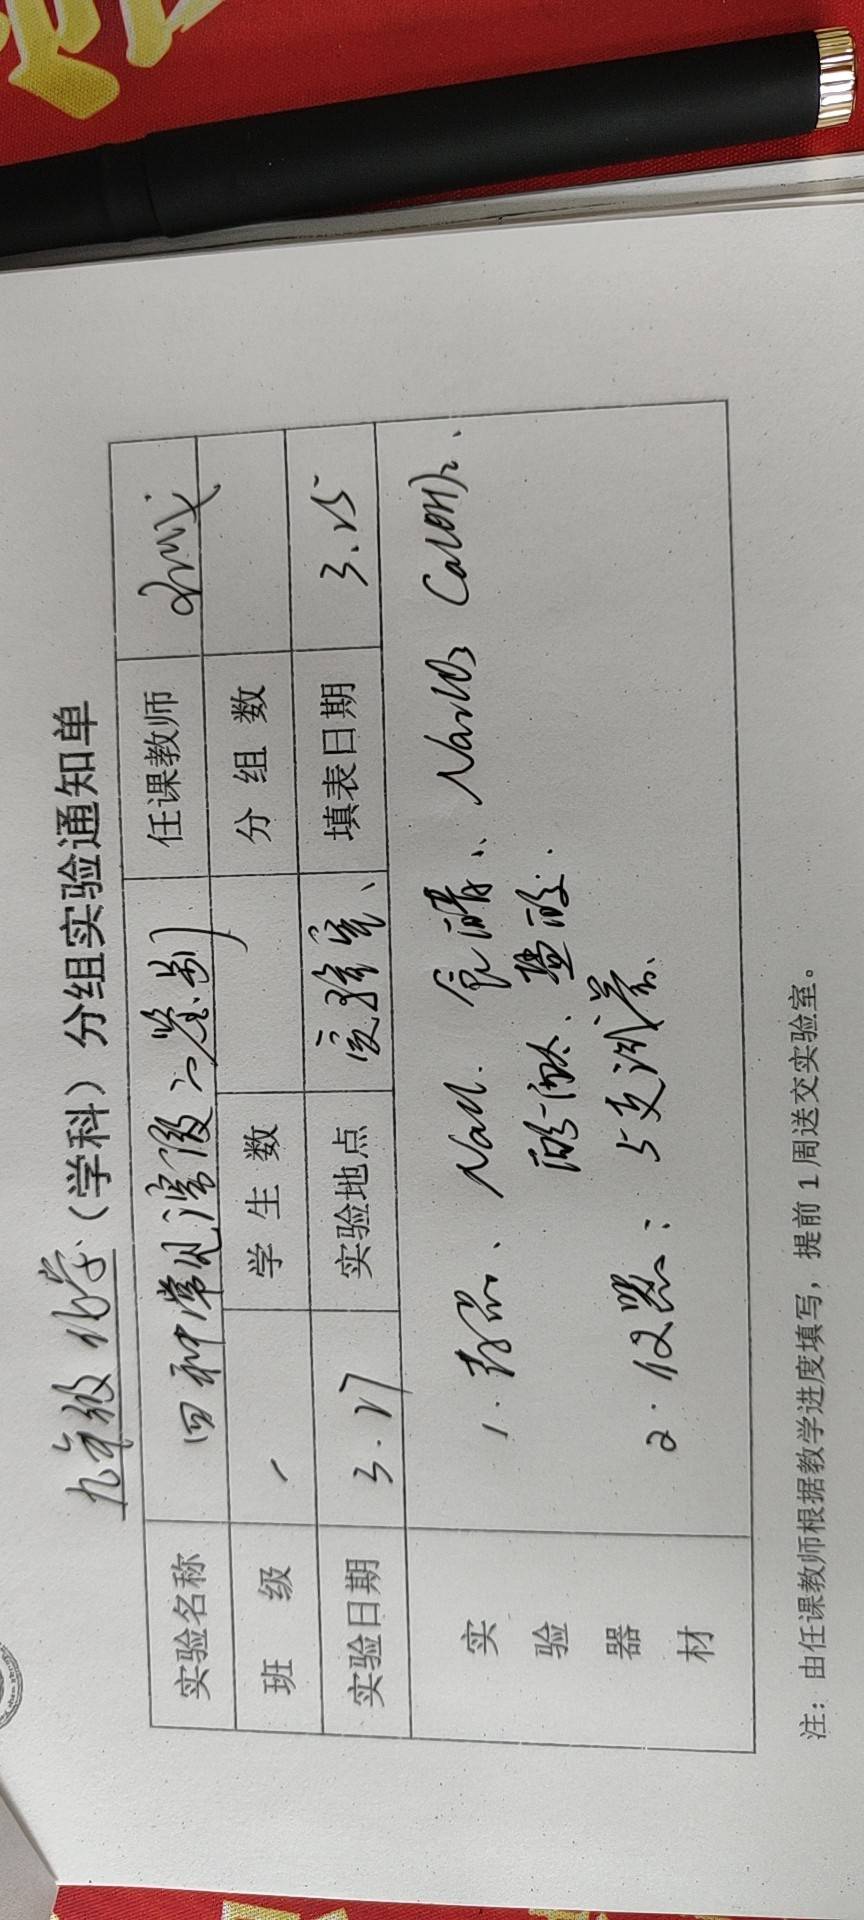 九年级化学（学科）分组实验通知单
实验名称 四种常见溶液的鉴别 任课教师
班 级 学 生 数 分 组 数
实验日期 3.27 实验地点 实验室、 填表日期 3.25
实验器材
1. 药品、NaCl. 食醋、、Na2CO3 Ca(OH)2、
酚酞、盐酸.
2. 仪器： 5支试管、
注：由任课教师根据教学进度填写，提前1周送交实验室。